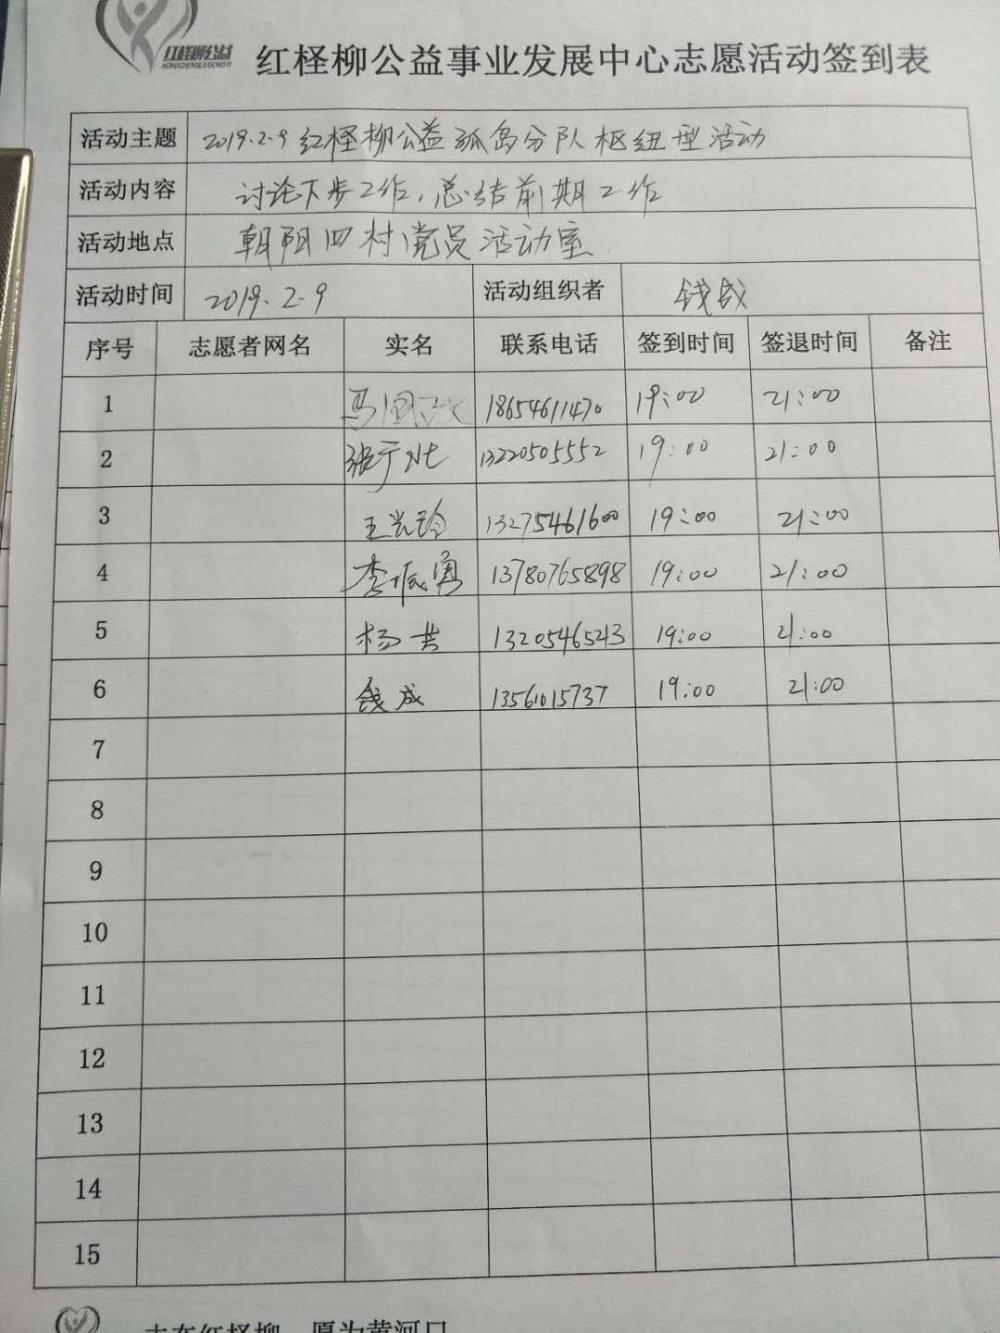 红柽柳公益
HONGCHENGLIUGONGYI
红柽柳公益事业发展中心志愿活动签到表
活动主题 2019.2.9 红柽柳公益孤岛分队枢纽型活动
活动内容 讨论下步工作,总结前期工作
活动地点 朝阳四村党员活动室
活动时间 2019.2.9 活动组织者 钱成
序号 志愿者网名 实名 联系电话 签到时间 签退时间 备注
1 马国 18654611470 19:00 21:00
2 张于 13220505552 19:00 21:00
3 王光玲 13275461600 19:00 21:00
4 李振勇 13780765898 19:00 21:00
5 杨芸 13205465243 19:00 21:00
6 钱成 13561015737 19:00 21:00
7
8
9
10
11
12
13
14
15